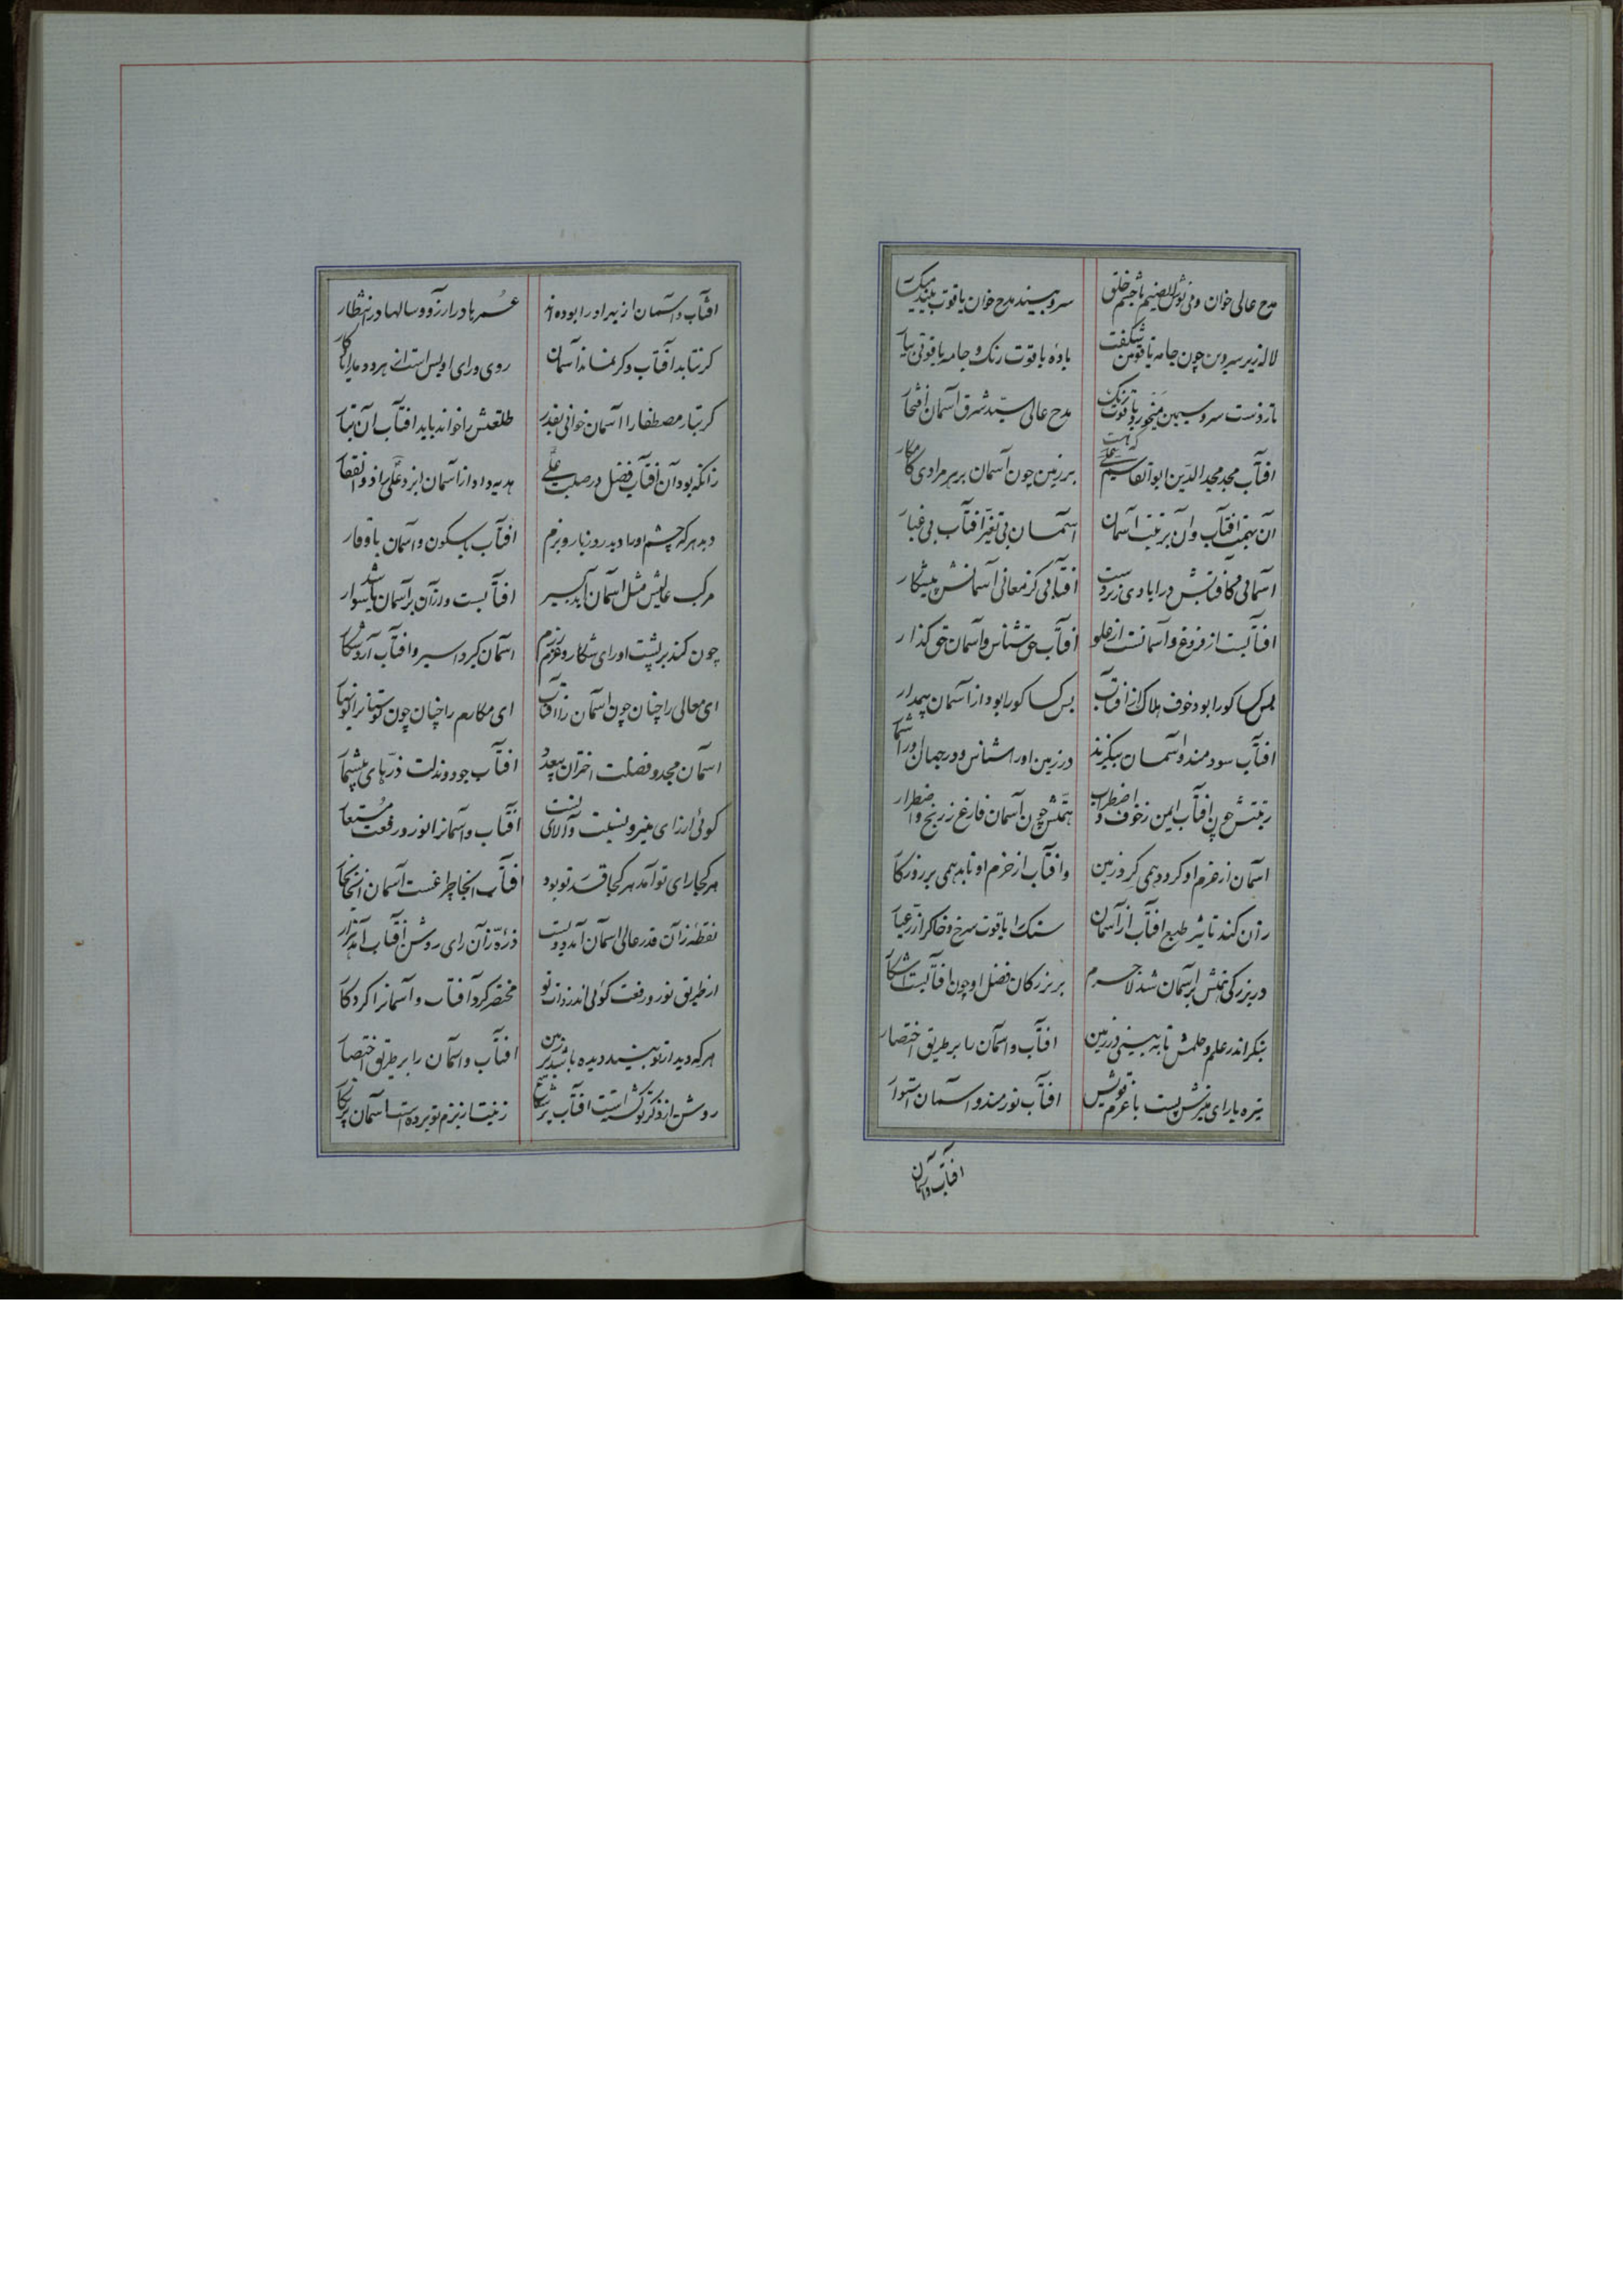 مدح عالی خوان و می نوش ای صنم با جشم خلق سرو بیند مدح خوان یاقوت بیند میکسار
لاله زیر سرو بن چون جامه یاقوتین شکفت باده یاقوت رنک و جامه یاقوتی بیار
تا ز دست سرو سیمین می خور یاقوت رنک مدح عالی سید شرق آسمان افتخار
افتاب مجد مجدالدین ابوالقاسم علی که هست بر زمین چون آسمان بر هر مرادی کامکار
آن بهمت افتاب وآن برتبت آسمان آسمان بی تغیر افتاب بی غبار
آسمانی کافتابش در ایادی زیردست افتابی کز معانی آسمانش پیشکار
افتابست از فروغ و آسمانست از علو افتاب حق شناس و آسمان حق کذار
بس کسا کورا بود خوف هلاک از افتاب بس کسا کورا بود از آسمان بیم دار
افتاب سودمند و آسمان بیکزند در زمین اورا شناس و در جهان اورا شمار
رتبتش چون افتاب ایمن ز خوف و اضطراب همتش چون آسمان فارغ ز رنج و اضطرار
آسمان از عزم او کردد همی کرد زمین وافتاب از حزم او تابد همی بر روزکار
زان کند تاثیر طبع افتاب از آسمان سنک را یاقوت سرخ و خاک را زر عیار
در بزرکی همتش بر آسمان شد لاجرم بر بزرکان فضل او چون افتابست آشکار
بنکر اندر علم و حلمش تا به بینی در زمین افتاب و آسمان را بر طریق اختصار
تیره با رای منیرش پست با عزم قویش افتاب نورمند و آسمان استوار
افتاب و آسمان
افتاب و آسمان از بهر او را بوده اند عمرها در ارزو و سالها در انتظار
کر نتابد آفتاب و کر نماند آسمان روی و رای او بس است از هر دو ما را یادکار
کر تبار مصطفا را آسمان خوانی بقدر طلعتش را خواند باید افتاب آن تبار
زانکه بود آن افتاب فضل در صلب علی هدیه داد از آسمان ایزد علی را ذوالفقار
دید هر که چشم او را دید روز بار و بزم افتاب با سکون و آسمان با وقار
مرکب عالیش مثل آسمان آمد بسیر افتابست و ازآن بر آسمان باشد سوار
چون کند بر پشت او رای شکار و عزم رزم آسمان کیرد اسیر و افتاب آرد شکار
ای معالی را چنان چون آسمان را افتاب ای مکارم را چنان چون بوستان را نوبهار
آسمان مجد و فضلت اختران بیعدد افتاب جود و بذلت ذرهای بیشمار
کوئی از رای منیر و نسبت والای تست افتاب و آسمانرا نور و رفعت مستعار
هر کجا رای تو آمد هر کجا قدر تو بود افتاب آنجا چراغست آسمان آنجا بخار
نقطه زآن قدر عالی آسمان آمد دویست ذره زآن رای روشن آفتاب آمد هزار
از طریق نور و رفعت کوئی اندر ذات تو مختصر کرد آفتاب و آسمانرا کردکار
هر که دید از تو بیند دیده باشد بر زمین افتاب و آسمان را بر طریق اختصار
روشن از ذکر تو کشته است افتاب پر شعاع زینت از بزم تو برده است آسمان پر نکار